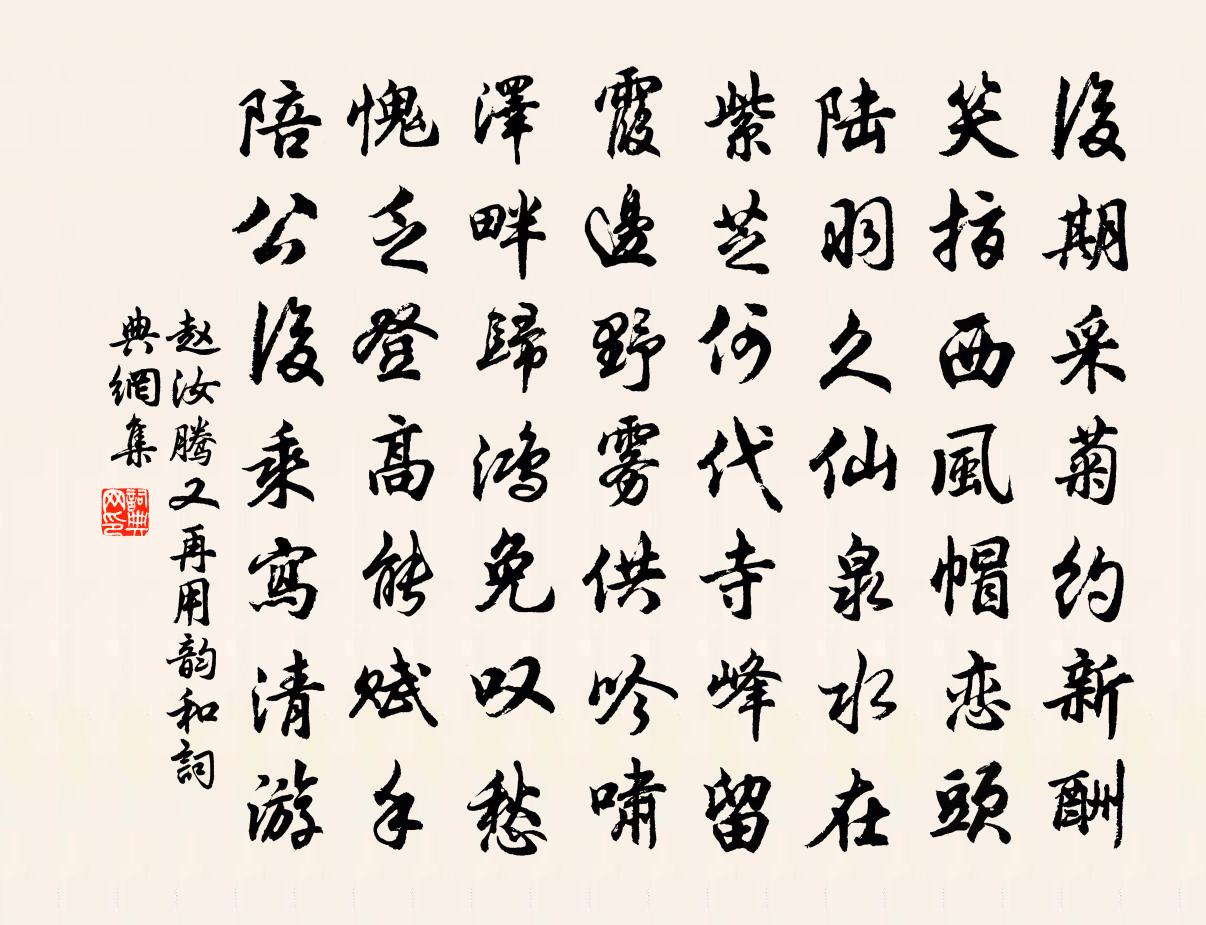 後期采菊约新酬
笑指西風帽恋頭
陆羽久仙泉水在
紫芝何代寺峰留
霞邊野雾供吟嘯
澤畔歸鸿免叹愁
愧乏登高能赋手
陪公後乘寫清游
赵汝腾又再用韵和詞
典網集
詞典网印